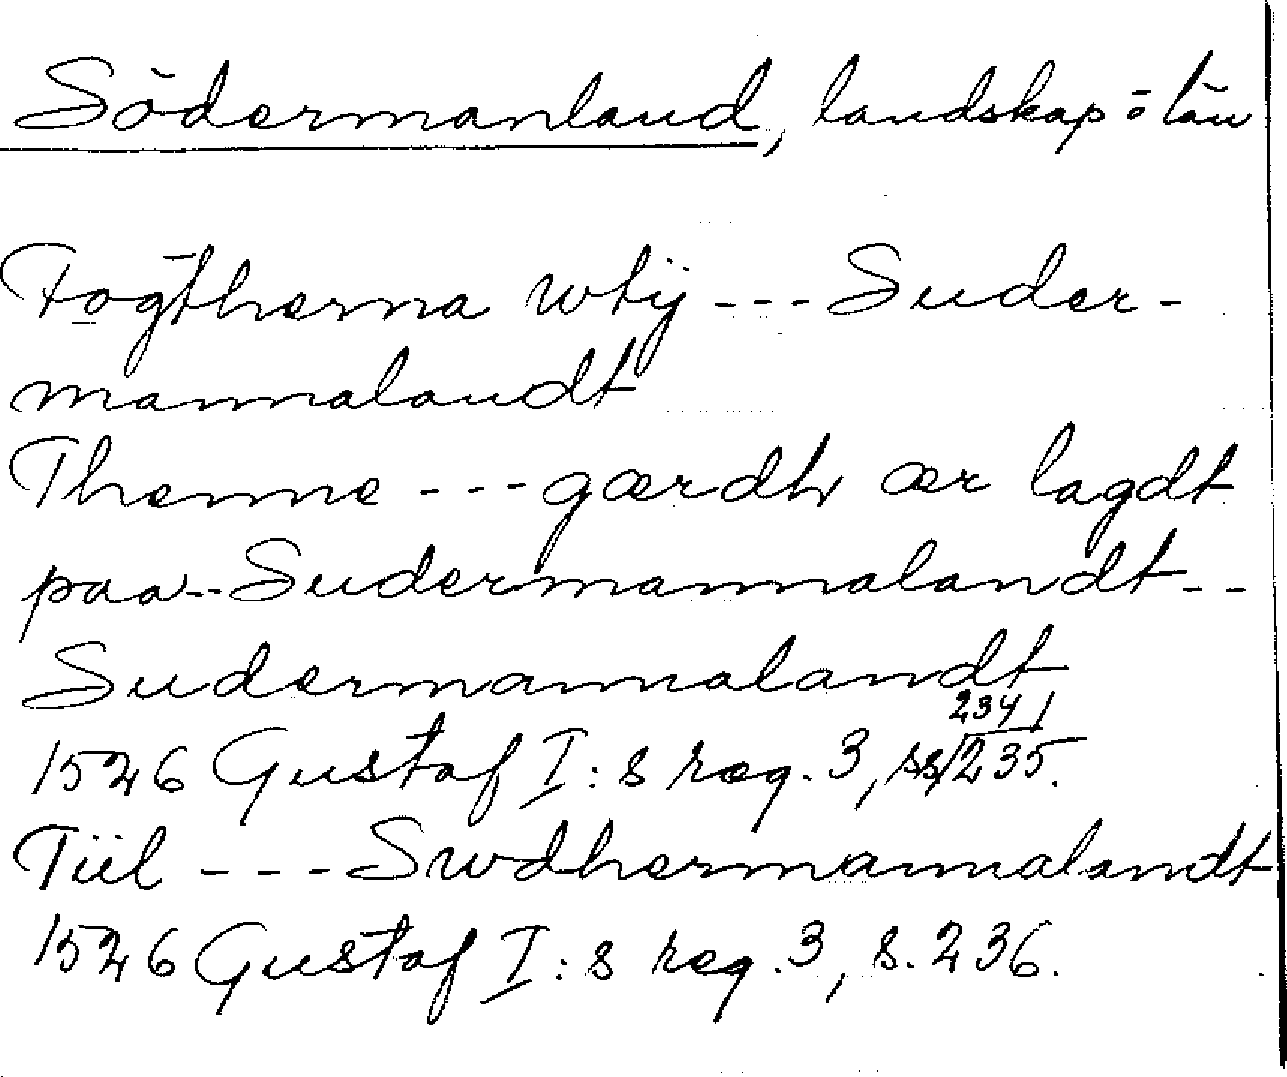 Södermanland, landskap o län
Fogtherna wtij --- Suder-
mannalandt
Thenne --- gærdh ær lagdt
paa -- Sudermannalandt --
Sudermannalandt
234
1526 Gustaf I:s reg. 3, ss/235.
Tiil --- Swdhermannalandt
1526 Gustaf I:s reg. 3, s. 236.